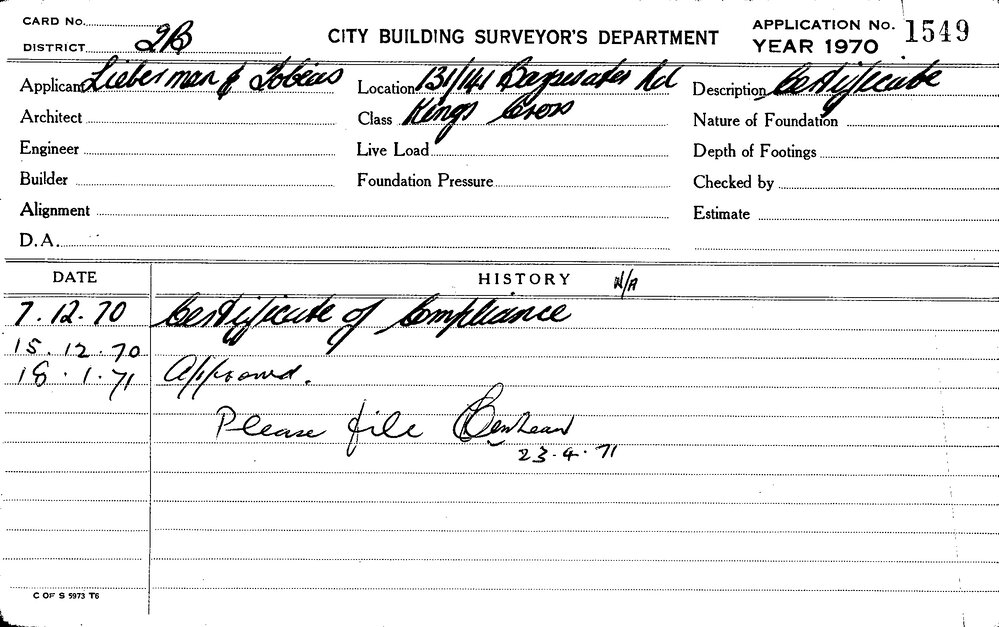 CARD No.
DISTRICT 2B
CITY BUILDING SURVEYOR'S DEPARTMENT
APPLICATION No. 1549
YEAR 1970
Applicant Lieberman & Tobias
Location 131/141 Bayswater Rd
Description Certificate
Architect
Class Kings Cross
Nature of Foundation
Engineer
Live Load
Depth of Footings
Builder
Foundation Pressure
Checked by
Alignment
Estimate
D.A.
DATE HISTORY N/A
7.12.70 Certificate of Compliance
15.12.70
18.1.71 Approved.
Please file
23.4.71
C OF S 5973 T6